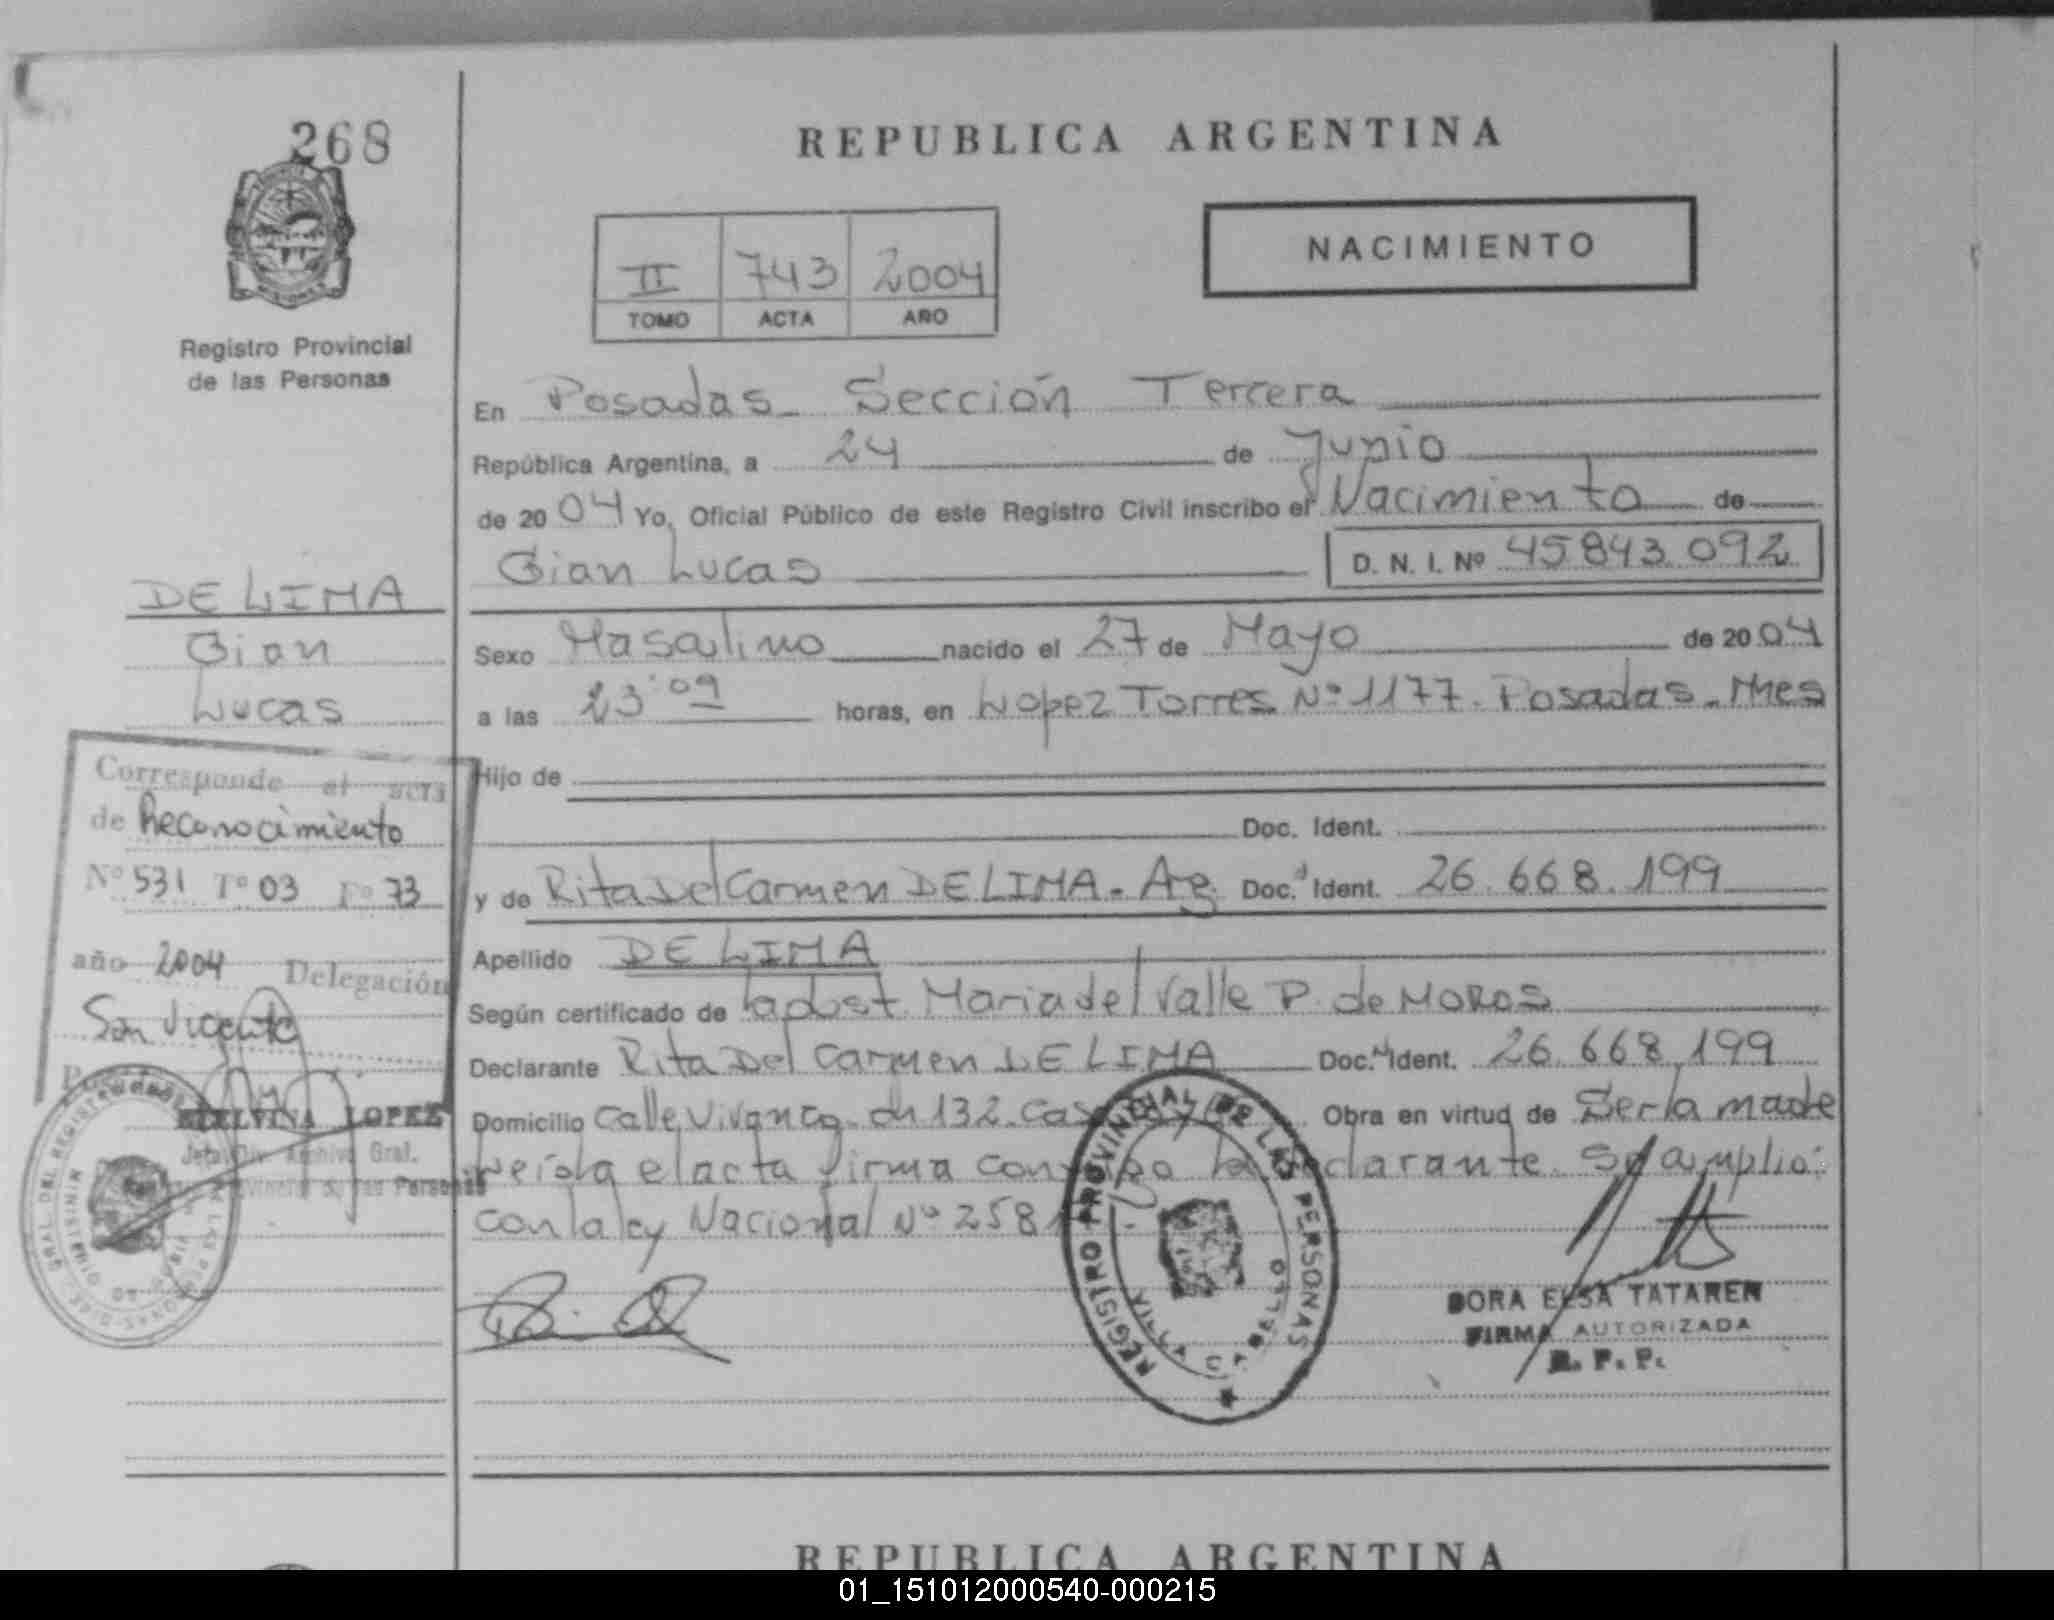 268
Registro Provincial
de las Personas
DE LIMA
Gian
Lucas
Corresponde el acta
de Reconocimiento
Nº 531 Tº 03 Fº 73
año 2004 Delegación
San Vicente
LOPEZ
Archivo Gral.
REPUBLICA ARGENTINA
NACIMIENTO
II 743 2004
TOMO ACTA AÑO
En Posadas - Sección Tercera
República Argentina, a 24 de Junio
de 2004 Yo, Oficial Público de este Registro Civil inscribo el Nacimiento de
Gian Lucas D. N. I. Nº 45.843.092
Sexo Masculino nacido el 27 de Mayo de 2004
a las 23'09 horas, en Lopez Torres Nº 1177. Posadas - Mnes
Hijo de
Doc. Ident.
y de Rita Del Carmen DE LIMA - Arg. Doc. Ident. 26.668.199
Apellido DE LIMA
Según certificado de obst. Maria del Valle P. de MOROS
Declarante Rita Del Carmen DE LIMA Doc. Ident. 26.668.199
Domicilio Calle Vivanco - ch 132 - Obra en virtud de Ser la madre
el acta firma la declarante. Se amplio:
con la ley Nacional Nº
REGISTRO PROVINCIAL DE LAS PERSONAS
VILLA CABELLO
DORA ELSA TATAREN
FIRMA AUTORIZADA
R. P. P.
REPUBLICA ARGENTINA
01_151012000540-000215